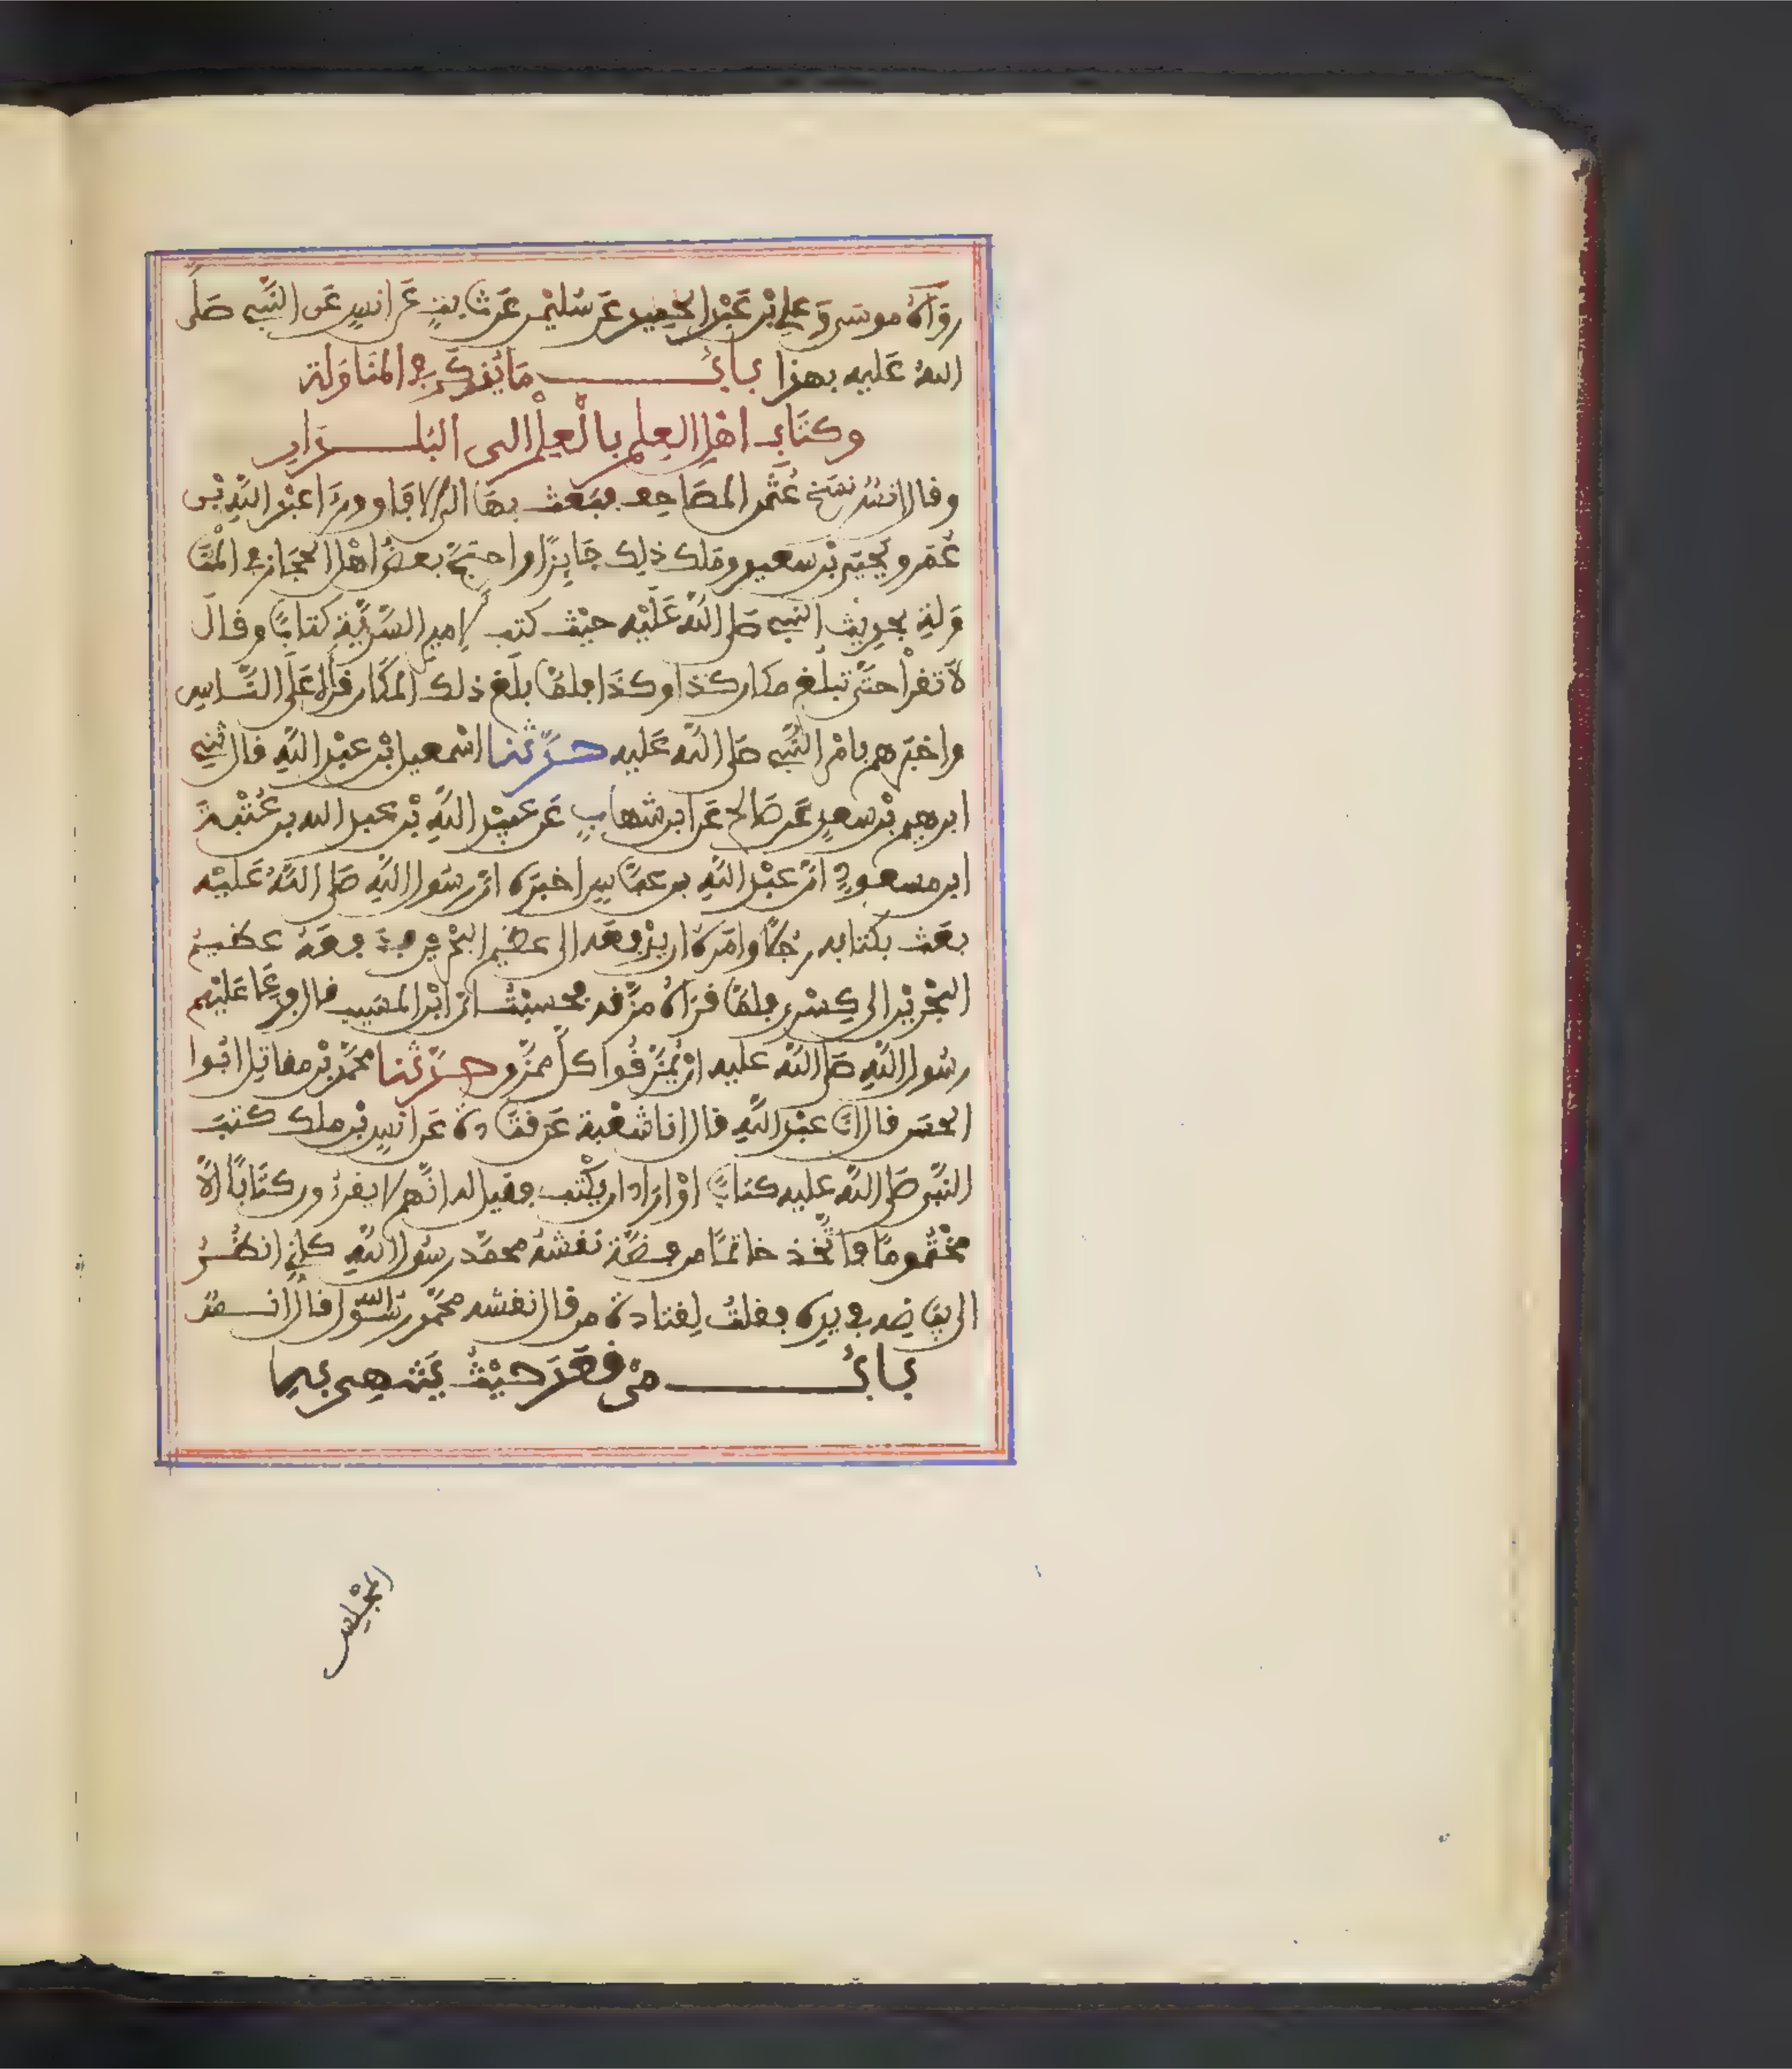 رَوَاهُ موسى وَعلي بْن عَبْد الحميد عَن سُليمن عَن ثابتٍ عَن انسٍ عَن النَّبِي صَلَّى
اللهُ عَليه بهذا بابُ مَا يُذكَرُ في المُنَاوَلة
وكتَابِ اهْلِ العِلمِ بالْعِلْمِ الى البُلدَانِ
وقال انسُ نسَخ عُثْمن المصَاحِف فبَعث بهَا الى الافاق ورَءا عبْد اللَّهِ بْن
عُمَر ويحيَى بْن سَعيد وملك ذلك جَايزًا واحتجَّ بعضُ اهْل الحجَاز في المُنَا
وَلةِ بحديث النبي صَلى اللَّهُ عَلَيْه حيْث كتب لامير السَّرِيَّةِ كتابًا وقال
لَا تقرأ حتَّى تبلُغ مكان كذا وكذا فلمَّا بلَغ ذلك المكَان قرأه عَلَى النَّاسِ
واخبَرهم بامْر النَّبي صَلى اللَّه عَليه حدَّثنا اسْمعيل بْن عبْد اللَّهِ قال ثنِي
ابرهيم بْن سعدٍ عَن صَالح عَن ابن شهابٍ عَن عبَيْد اللَّهِ بْن عبد الله بن عُتْبةَ
ابن مسعودٍ انَّ عبْد اللَّهِ بن عبَّاسٍ اخبَره انَّ رسُول اللَّهِ صَلى اللَّهُ عَليْه
بعَث بكتابه رجُلًا وامَرهُ ان يدْفعَه الى عظيم البحْرين فدفعَهُ عظيمُ
البحْرين الى كِسْرى فلمَّا قرَأهُ مزَّقه فحسبْتُ انَّ ابْن المسَيب قال فدعَا عَليْهم
رسُول اللَّهِ صَلى اللَّه عليه انْ يُمَزَّقُوا كلَّ ممزَّقٍ حدَّثنا محمَّد بْن مقاتل ابُوا
الحسَن قال انا عبْد اللَّهِ قال انا شعْبة عَن قتَادة عَن انسٍ بْن ملك كتَبَ
النَّبي صَلى اللَّه عليه كتابًا اوْ ارَاد ان يكْتب فقيل له انَّهم لا يقرءُون كتَابًا الَّا
مخْتُومًا فاتَّخذ خاتمًا من فضَّة نقشُهُ محمَّد رسُول اللَّهِ كأنِّي انظُرُ
الى بيَاضِه في يده فقلتُ لِقتادة من قال نقشه محمَّد رسُول الله قال انَسٌ
بابُ مَن قعَدَ حيْثُ يَنتهي به
المجْلِس